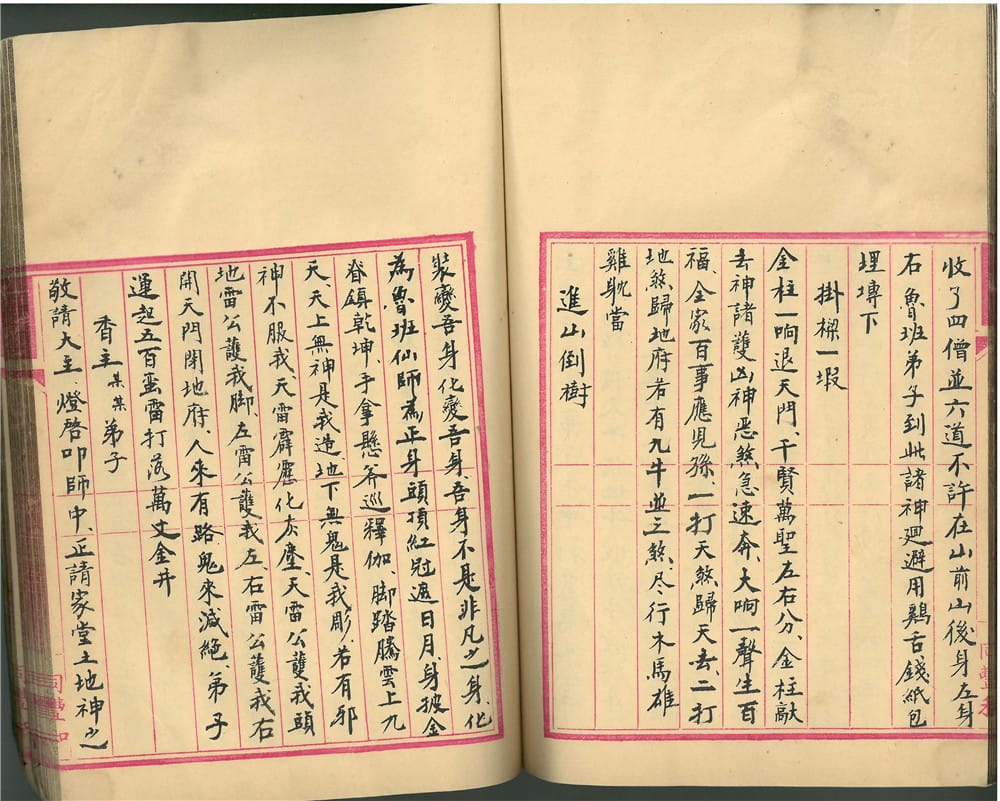 收了四僧並六道不許在山前山後身左身
右魯班弟子到此諸神廻避用鷄舌錢紙包
埋塼下
掛樑一報
金柱一响退天門千賢萬聖左右分、金柱敲
去神諸護凶神惡煞急速奔、大响一聲生百
福、全家百事應児孫、一打天煞歸天去、二打
地煞歸地府若有九牛並三煞、尽行木馬雄
雞躭當
進山倒樹
裝變吾身化變吾身、吾身不是非凡之身、化
為魯班仙師為正身頭頂紅冠遮日月、身披金
脊鎮乾坤、手拿懸斧巡釋伽、脚踏騰雲上九
天、天上無神是我造地下無鬼是我彫、若有邪
神不服我、天雷霹靂化灰塵、天雷公護我頭
地雷公護我脚、左雷公護我左、右雷公護我右
開天門閉地府、人來有路鬼來滅絶、弟子
運起五百蛮雷打落萬丈金井
香主某某弟子
敬請大主、燈啓叩師中、正請家堂土地神之